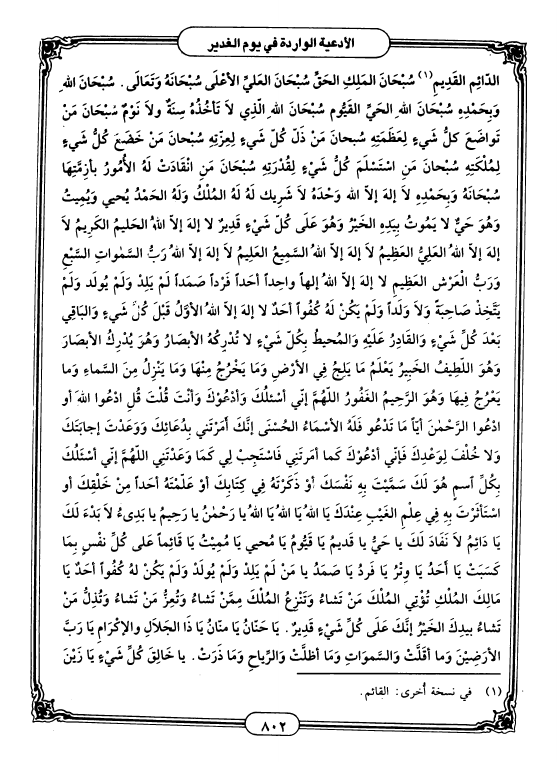 الأدعية الواردة في يوم الغدير
الدّائِم القَدِيمِ(١) سُبْحَانَ المَلِكِ الحَقِّ سُبْحَانَ العَلِيِّ الأَعْلَى سُبْحَانَهُ وَتَعَالَى. سُبْحَانَ اللهِ
وَبِحَمْدِهِ سُبْحَانَ اللهِ الحَيِّ القَيُّومِ سُبْحَانَ اللهِ الَّذِي لاَ تَأْخُذُهُ سِنَةٌ ولاَ نَوْمٌ سُبْحَانَ مَنْ
تَواضَعَ كلُّ شَيءٍ لِعَظَمَتِهِ سُبحانَ مَنْ ذَلَّ كُلّ شَيءٍ لِعِزَّتِهِ سُبْحَانَ مَنْ خَضَعَ كُلُّ شَيءٍ
لِمُلْكَتِهِ سُبْحانَ مَنِ اسْتَسْلَمَ كُلُّ شَيْءٍ لِقُدْرَتِهِ سُبْحَانَ مَنِ انْقَادَتْ لَهُ الأُمُورُ بأزِمَّتِهَا
سُبْحَانَهُ وَبِحَمْدِهِ لاَ إلهَ إلاّ اللهُ وَحْدَهُ لاَ شَرِيك لَهُ لَهُ المُلْكُ وَلَهُ الحَمْدُ يُحيي وَيُمِيتُ
وَهُوَ حَيٌّ لا يَمُوتُ بِيَدِهِ الخَيْرُ وَهُوَ عَلَى كُلّ شَيْءٍ قَدِيرٌ لا إلهَ إلاّ اللهُ الحَلِيمُ الكَرِيمُ لاَ
إلهَ إلاّ اللهُ العَلِيُّ العَظِيمُ لاَ إلهَ إلاّ اللهُ السَّمِيعُ العَلِيمُ لاَ إلهَ إلاّ اللهُ رَبُّ السَّمٰواتِ السَّبْعِ
وَرَبُّ الْعَرْشِ العَظِيمِ لا إلهَ إلاّ اللهُ إلهاً واحِداً أحَداً فَرْداً صَمَداً لَمْ يَلِدْ وَلَمْ يُولَد وَلَمْ
يَتَّخِذ صَاحِبَةً وَلاَ وَلَداً وَلَمْ يَكُنْ لَهُ كُفُواً أحَدٌ لا إلهَ إلاّ اللهُ الأوَّلُ قَبْلَ كُلّ شَيءٍ وَالبَاقِي
بَعْدَ كُلِّ شَيءٍ وَالقَادِرُ عَلَيْهِ وَالمُحيطُ بِكُلّ شَيْءٍ لا تُدْرِكُهُ الأبصَارُ وَهُوَ يُدْرِكُ الأبصَارَ
وَهُوَ اللطِيفُ الخَبِيرُ يَعْلَمُ مَا يَلِجُ فِي الأرْضِ وَمَا يَخْرُجُ مِنْهَا وَمَا يَنْزِلُ مِنَ السَّماءِ وَما
يَعْرُجُ فِيهَا وَهُوَ الرَّحِيمُ الغَفُورُ اللّهُمَّ إنّي أسْئَلُكَ وَأدْعُوكَ وَأنْتَ قُلْتَ قُلِ ادْعُوا اللهَ أو
ادعُوا الرَّحْمٰنَ أيّاً مَا تَدْعُو فَلَهُ الأسْمَاءُ الحُسْنَى إنَّكَ أمَرْتَنِي بِدُعَائِكَ وَوَعَدْتَ إجابَتِكَ
وَلا خُلْفَ لِوَعْدِكَ فَإنّي أدْعُوْكَ كَما أمَرتَنِي فَاسْتَجِبْ لِي كَمَا وَعَدْتَنِي اللّهُمَّ إنّي أسْئَلُكَ
بِكُلّ اسمٍ هُوَ لَكَ سَمَّيْتَ بِهِ نَفْسَكَ أوْ ذَكَرْتَهُ فِي كِتَابِكَ أوْ عَلَّمْتَهُ أحَداً مِنْ خَلْقِكَ أو
اسْتَأثَرْتَ بِهِ فِي عِلْمِ الغَيْبِ عِنْدَكَ يَا اللهُ يَا اللهُ يَا اللهُ يا رَحْمٰنُ يا رحِيمُ يا بَدِىءُ لاَ بَدْءَ لَكَ
يَا دَائِمُ لاَ نَفَادَ لَكَ يا حَيُّ يا قَدِيمُ يَا قَيُّومُ يَا مُحيي يَا مُمِيتُ يَا قَائِماً عَلى كُلّ نَفْسٍ بِمَا
كَسَبَتْ يَا أحَدُ يَا وِتْرُ يَا فَرْدُ يَا صَمَدُ يا مَنْ لَمْ يَلِدْ وَلَمْ يُولَدْ وَلَمْ يَكُنْ لَهُ كُفُواً أحَدٌ يَا
مَالِكَ المُلْكِ تُؤْتِي المُلْكَ مَنْ تَشاءُ وَتَنْزِعُ المُلْكَ مِمَّنْ تَشاءُ وَتُعِزُّ مَنْ تَشاءُ وَتُذِلُّ مَنْ
تَشاءُ بيدِكَ الخَيْرُ إنَّكَ عَلَى كُلّ شَيْءٍ قَدِيرٌ. يَا حَنّانُ يَا مَنانُ يَا ذَا الجَلاَلِ والإكْرَامِ يَا رَبَّ
الأرَضِينَ وَمَا أقَلَّتْ وَالسَّموَاتِ وَمَا أظَلَّتْ وَالرِّياحِ وَمَا ذَرَتْ. يا خالِقَ كُلّ شَيْءٍ يَا زَيْنَ
(١) في نسخة أخرى: القائم.
٨٠٢